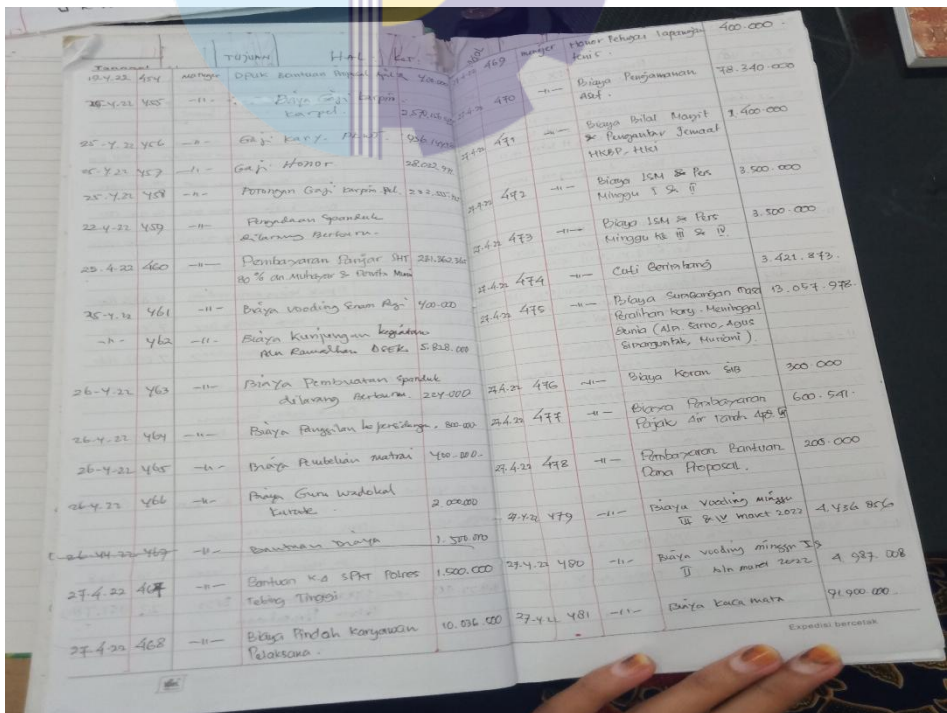 TUJUAN HAL KET.
19.4.22 454 manajer DPUK Bantuan
25-4.22 455 -11- Biaya Gaji karpin
karpel.
25-4.22 456 -11- Gaji Kary. PKWT.
25-4.22 457 -11- Gaji Honor
25.4.22 458 -11- Potongan Gaji karpin pel.
22-4.22 459 -11- Pengadaan Spanduk
dilarang Berburu.
25.4.22 460 -11- Pembayaran Panjar SHT
80 % an. &
25-4.22 461 -11- Biaya vooding Enam 400.000
-11- 462 -11- Biaya Kunjungan kegiatan
Ramadhan 5.828.000
26-4-22 463 -11- Biaya Pembuatan Spanduk
dilarang Berburu. 224.000
26-4.22 464 -11- Biaya Panggilan ke persidangan. 800.000
26-4-22 465 -11- Biaya Pembelian matrai 400.000.-
26-4.22 466 -11- Biaya Guru wadokai
karate 2.000.000
26-4.22 467 -11- Bantuan Biaya 1.500.000
27-4.22 467 -11- Bantuan Ka SPKT Polres
Tebing Tinggi 1.500.000
27-4-22 468 -11- Biaya Pindah Karyawan
Pelaksana. 10.036.000
469 manajer Honor Petugas Lapangan 400.000 -
470 -11- Biaya Pengamanan
aset. 78.340.000
27.4.22 471 -11- Biaya Bilal Mayit
& Pengantar Jenazah
HKBP-HKI 1.400.000
27.4.22 472 -11- Biaya LSM & Pers
Minggu I & II 3.500.000
27.4.22 473 -11- Biaya LSM & Pers
Minggu ke III & IV. 3.500.000
27.4.22 474 -11- Cuti Bertimbang 3.421.873.
27.4.22 475 -11- Biaya Sunsangan masa
Peralihan Kary. Meninggal
Dunia (Aln. Sarno, Agus
Simanguntak, Muriani). 13.057.978.
27.4.22 476 -11- Biaya Koran SIB 300 000
27.4.22 477 -11- Biaya Pembayaran
Pajak Air Tanah 600.541.
27.4.22 478 -11- Pembayaran Bantuan
Dana Proposal. 200.000
27.4.22 479 -11- Biaya vooding minggu
III & IV maret 2022 4.436 856
27.4.22 480 -11- Biaya vooding minggu I &
II bln maret 2022 4.987.008
27-4.22 481 -11- Biaya kaca mata 91.900.000.
Expedisi bercetak